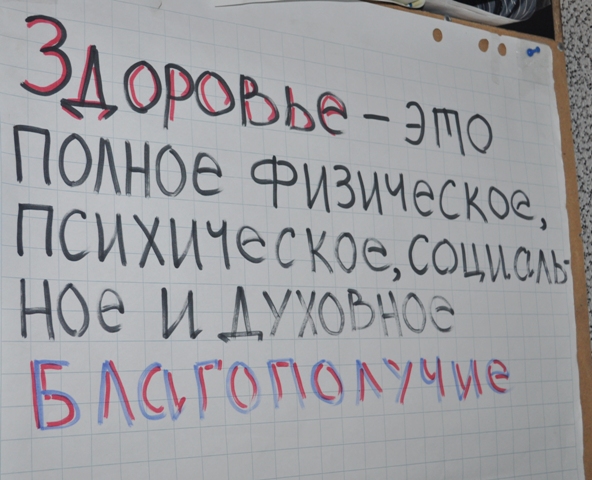 Здоровье - это
полное физическое,
психическое, социаль-
ное и духовное
Благополучие